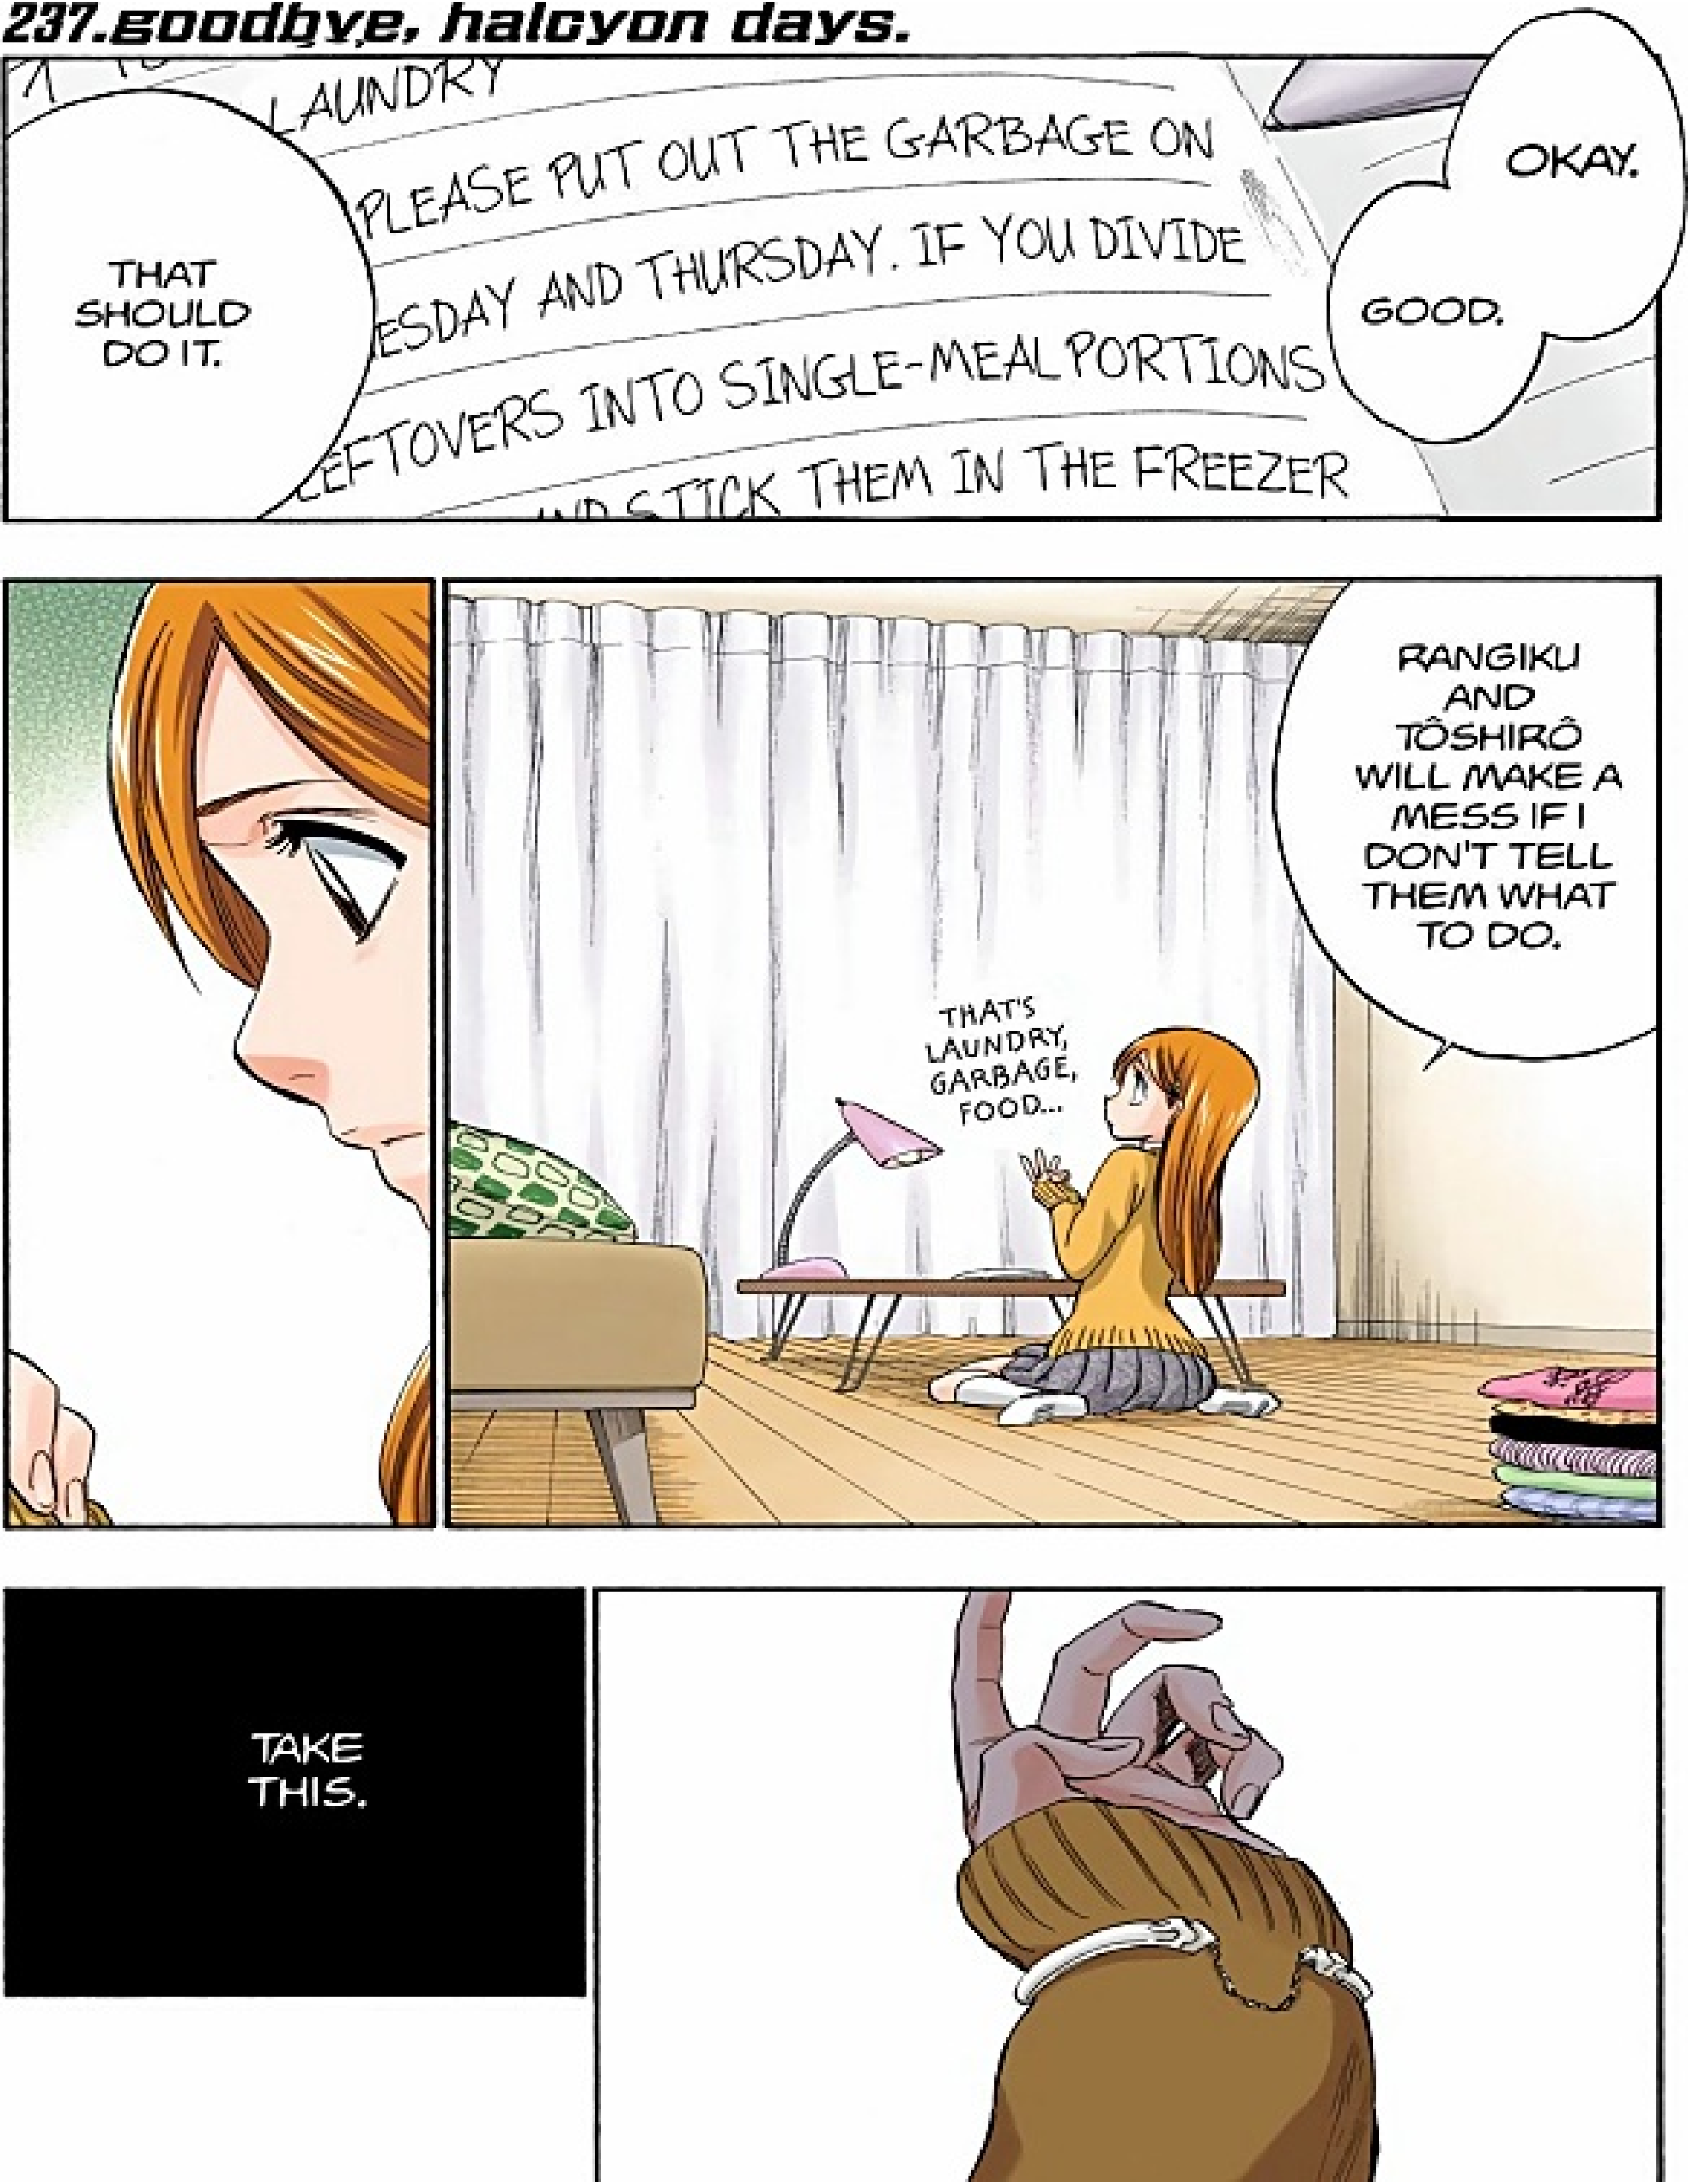 237.goodbye, halcyon days.
OKAY.
GOOD.
LAUNDRY
PLEASE PUT OUT THE GARBAGE ON
ESDAY AND THURSDAY. IF YOU DIVIDE
LEFTOVERS INTO SINGLE-MEAL PORTIONS
AND STICK THEM IN THE FREEZER
THAT
SHOULD
DO IT.
RANGIKU
AND
TÔSHIRÔ
WILL MAKE A
MESS IF I
DON'T TELL
THEM WHAT
TO DO.
THAT'S
LAUNDRY,
GARBAGE,
FOOD...
TAKE
THIS.